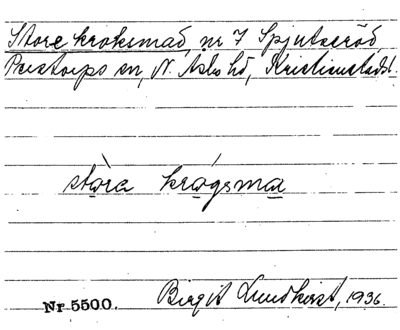 Store kroksmad, nr 7 Spjutseröd,
Perstorps sn, N. Åsbo hd, Kristianstads l.
stòra krågsma
Nr 5500. Birgit Lundkvist, 1936.